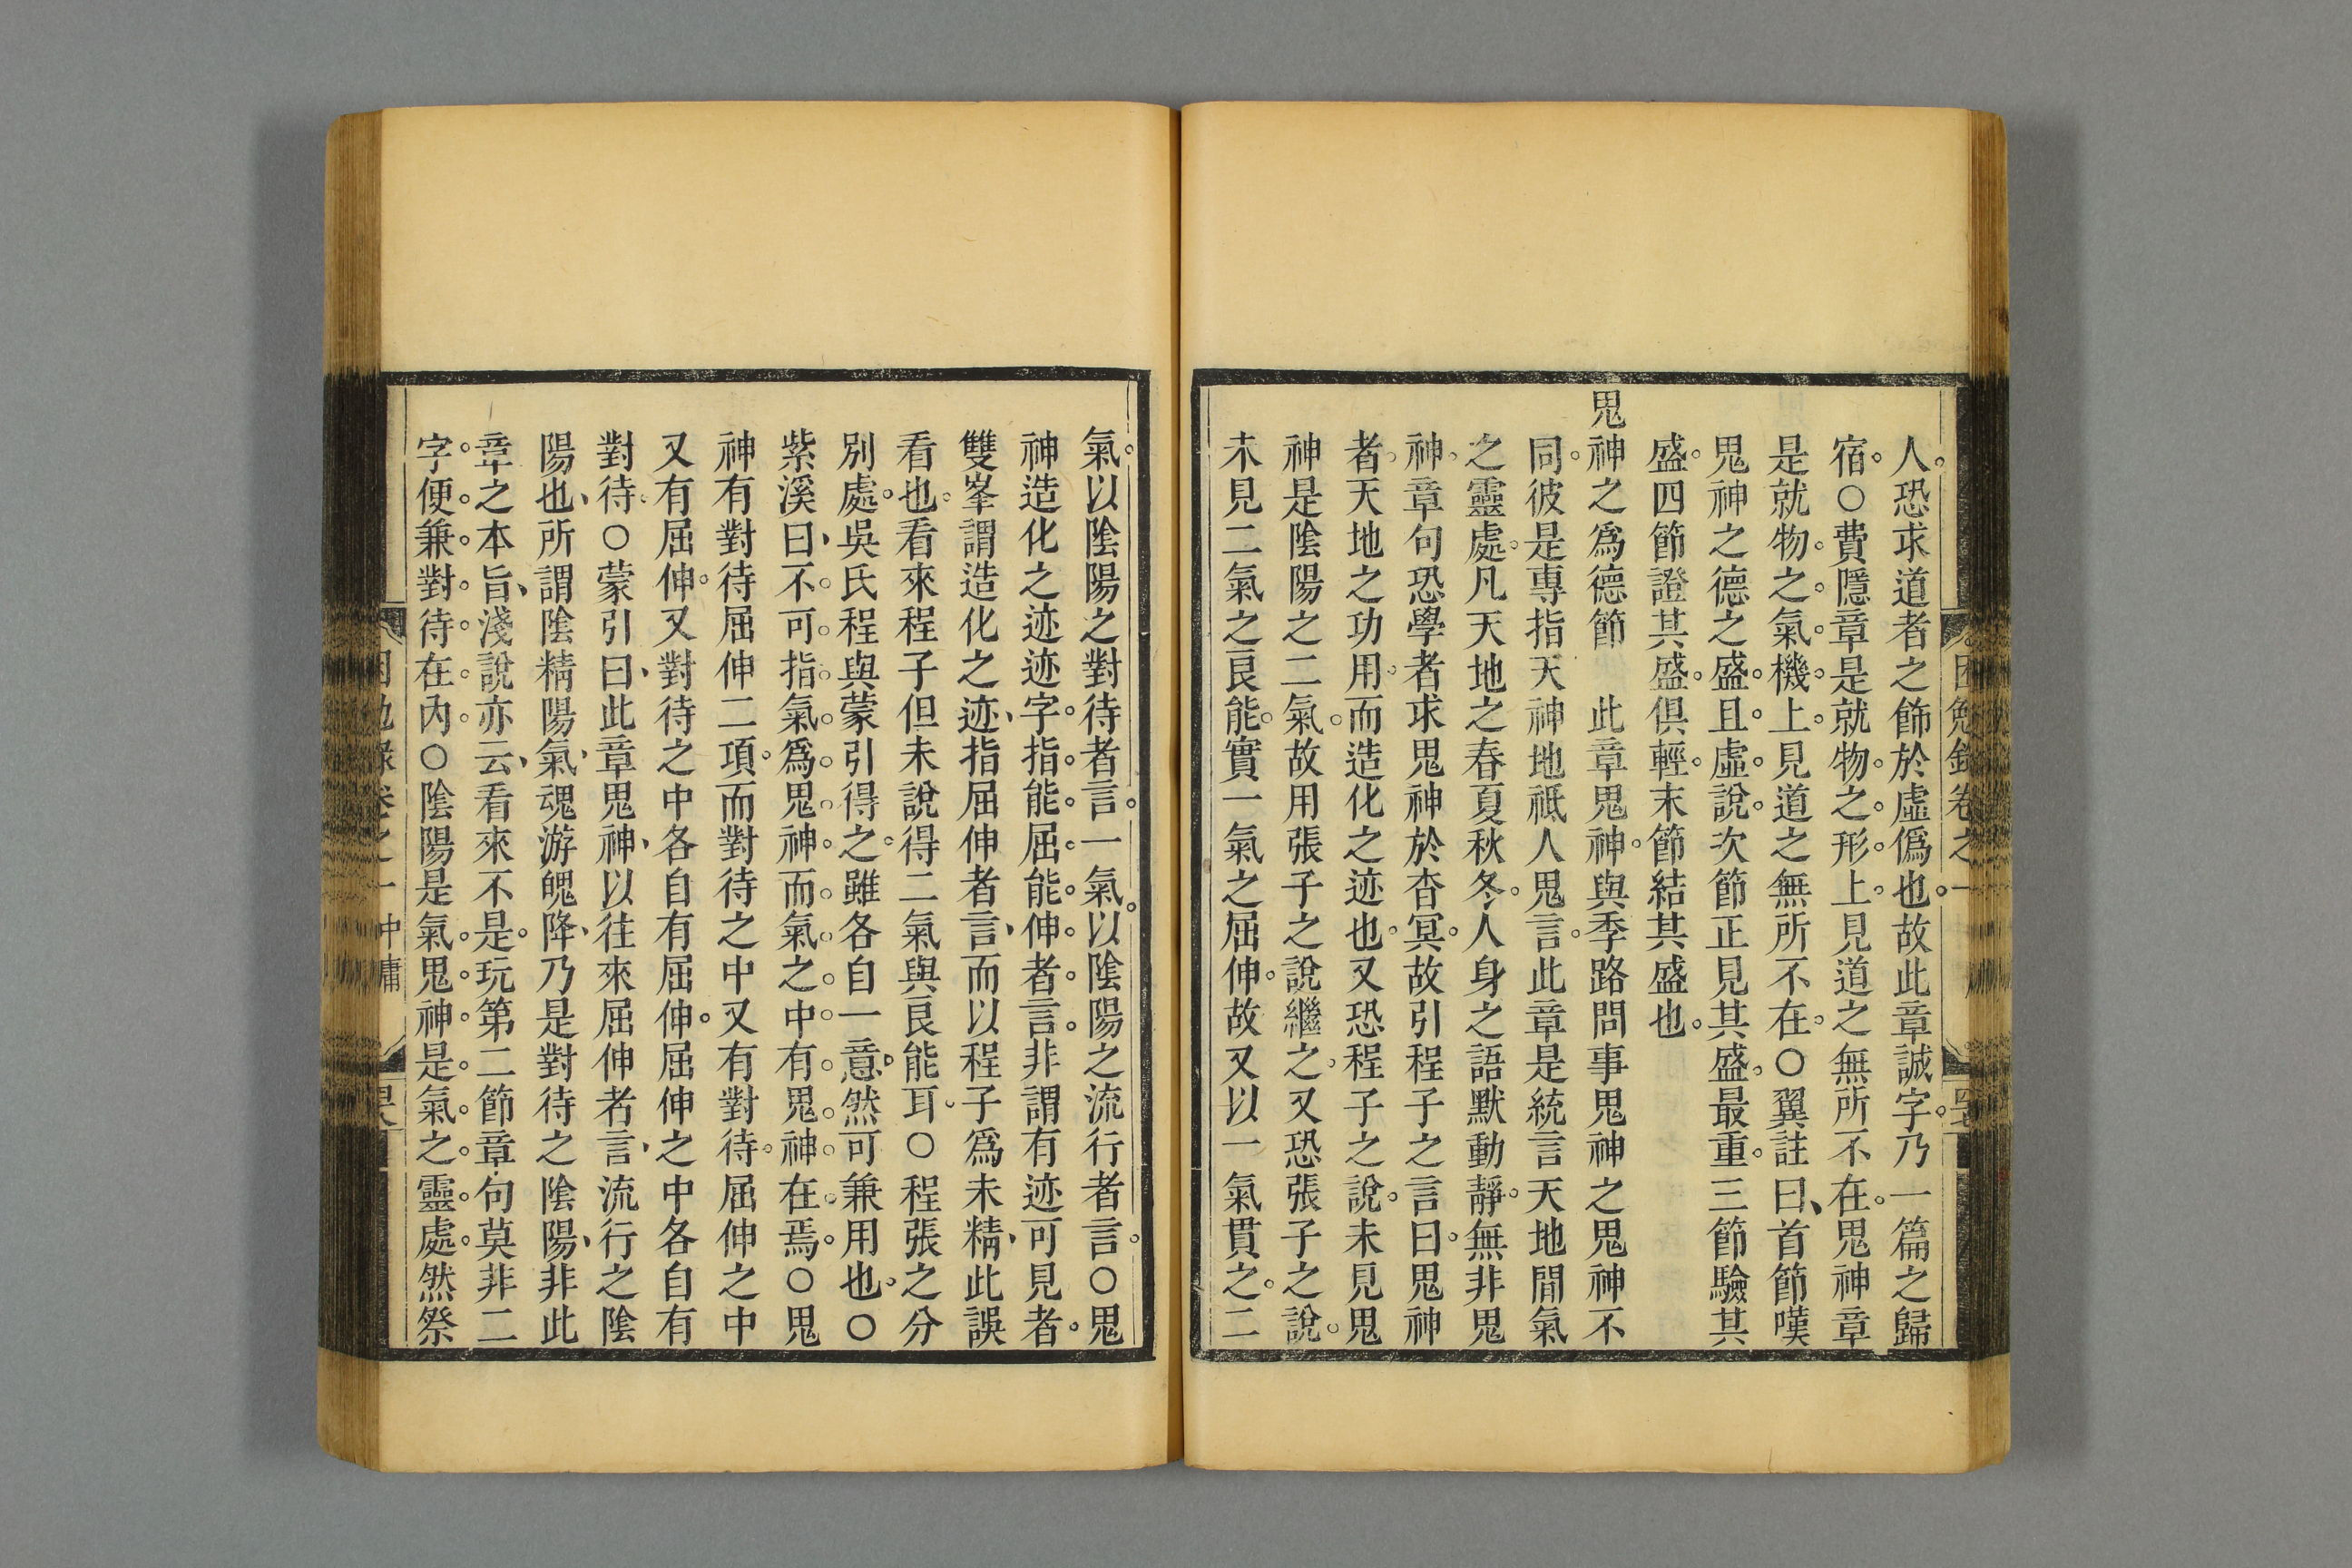 人恐求道者之飾於虛僞也故此章誠字乃一篇之歸
宿○費隱章是就物之形上見道之無所不在鬼神章
是就物之氣機上見道之無所不在○翼註曰首節嘆
鬼神之德之盛且虛說次節正見其盛最重三節驗其
盛四節證其盛俱輕末節結其盛也
鬼神之爲德節　此章鬼神與季路問事鬼神之鬼神不
同彼是專指天神地祗人鬼言此章是統言天地閒氣
之靈處凡天地之春夏秋冬人身之語默動靜無非鬼
神章句恐學者求鬼神於杳冥故引程子之言曰鬼神
者天地之功用而造化之迹也又恐程子之說未見鬼
神是陰陽之二氣故用張子之說繼之又恐張子之說
未見二氣之良能實一氣之屈伸故又以一氣貫之二
氣以陰陽之對待者言一氣以陰陽之流行者言○鬼
神造化之迹迹字指能屈能伸者言非謂有迹可見者
雙峯謂造化之迹指屈伸者言而以程子爲未精此誤
看也看來程子但未說得二氣與良能耳○程張之分
別處吳氏程與蒙引得之雖各自一意然可兼用也○
紫溪曰不可指氣爲鬼神而氣之中有鬼神在焉○鬼
神有對待屈伸二項而對待之中又有對待屈伸之中
又有屈伸又對待之中各自有屈伸屈伸之中各自有
對待○蒙引曰此章鬼神以往來屈伸者言流行之陰
陽也所謂陰精陽氣魂游魄降乃是對待之陰陽非此
章之本旨淺說亦云看來不是玩第二節章句莫非二
字便兼對待在內○陰陽是氣鬼神是氣之靈處然祭